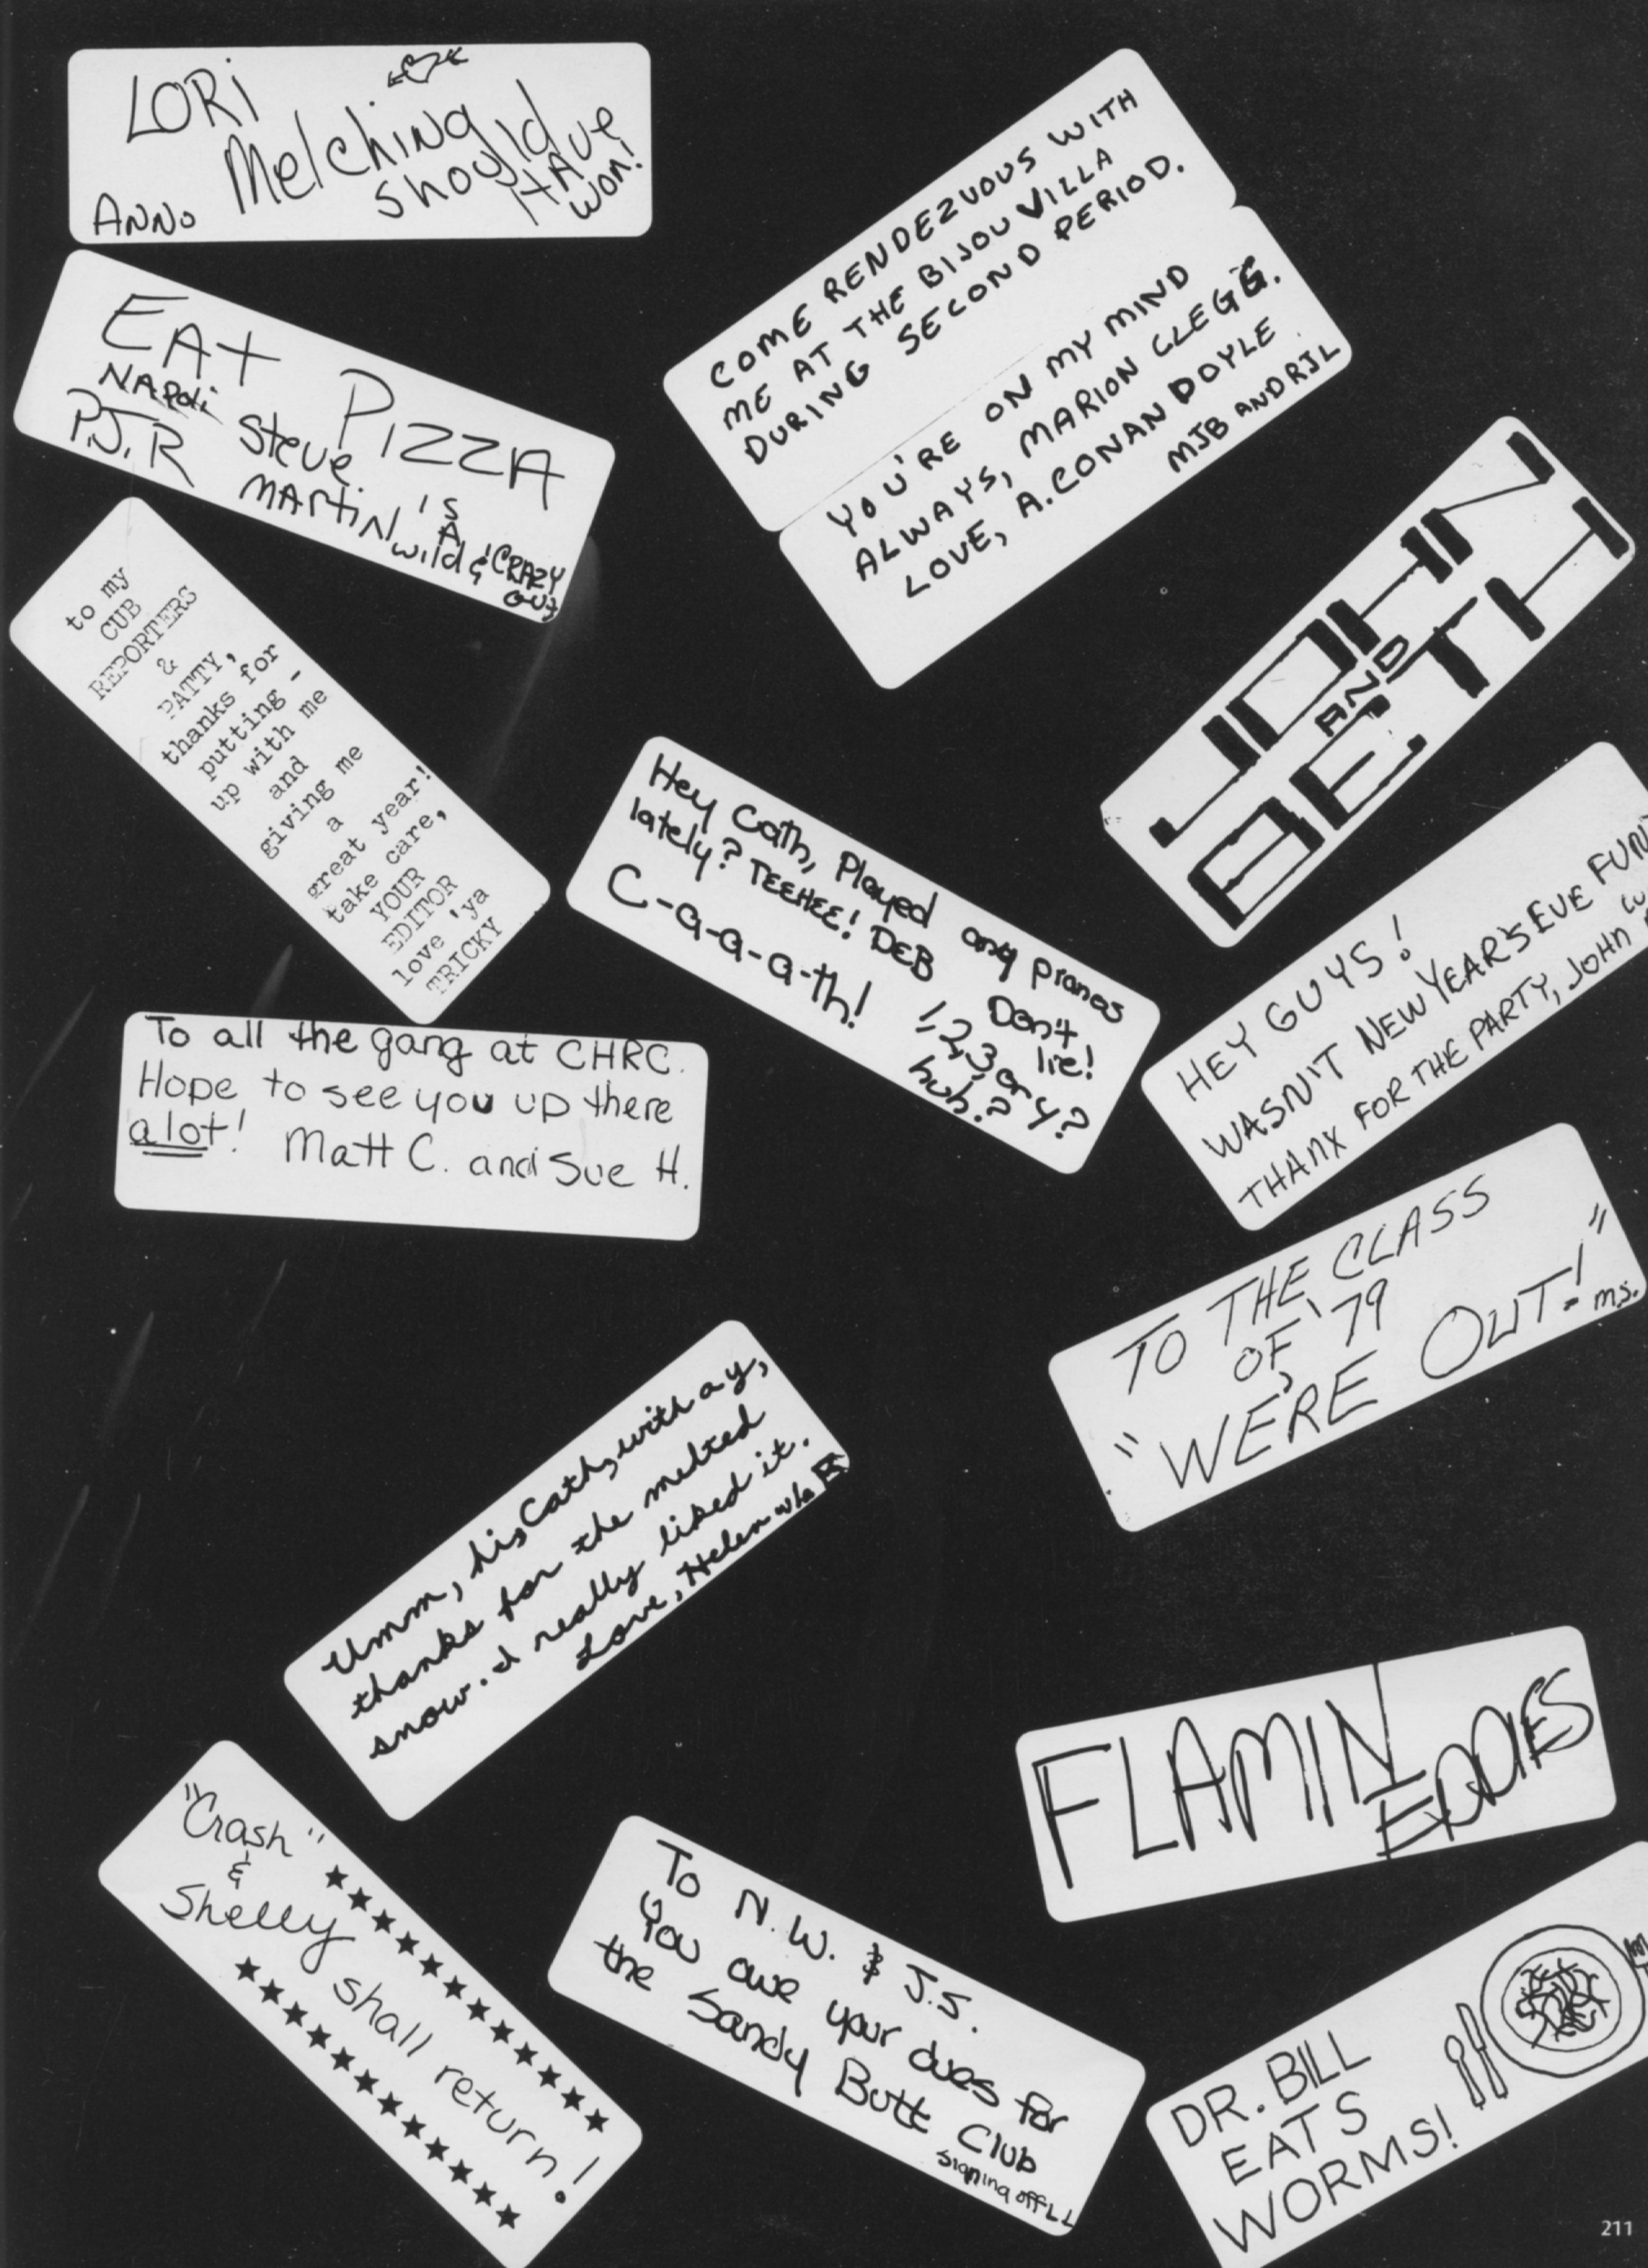 LORi
Melching
should
HAve
won!
ANNo
EAt
PizzA
NApoli
P.J.R
Steve
MARtiN
is
A
wild & CRAZY
guy
to my
CUB
REPORTERS
&
PATTY,
thanks for
putting -
up with me
and
giving me
a
great year!
take care,
YOUR
EDITOR
love 'ya
TRICKY
COME RENDEZVOUS WITH
ME AT THE BIJOU VILLA
DURING SECOND PERIOD.
YOU'RE ON MY MIND
ALWAYS, MARION CLEGG.
LOVE, A. CONAN DOYLE
MJB AND RJL
JOHN
AND
BETH
Hey Cath, Played any pranas
lately? TEEHEE! DEB Don't
C-a-a-a-th! lie!
1,2,3, or 4?
huh.?
HEY GUYS!
WASN'T NEW YEAR'S EVE FUN
THANX FOR THE PARTY, JOHN
To all the gang at CHRC.
Hope to see you up there
a lot! Matt C. and Sue H.
TO THE CLASS
OF '79
"WE'RE OUT!"
m.s.
Umm, hi, Cath, with a y,
thanks for the melted
snow. I really liked it.
Love, Helen w/a R
FLAMIN
EDDIES
"Crash"
&
Shelly
shall
return!
To N.W. & J.S.
You owe your dues for
the Sandy Butt Club
signing off LL
DR. BILL
EATS
WORMS!
211